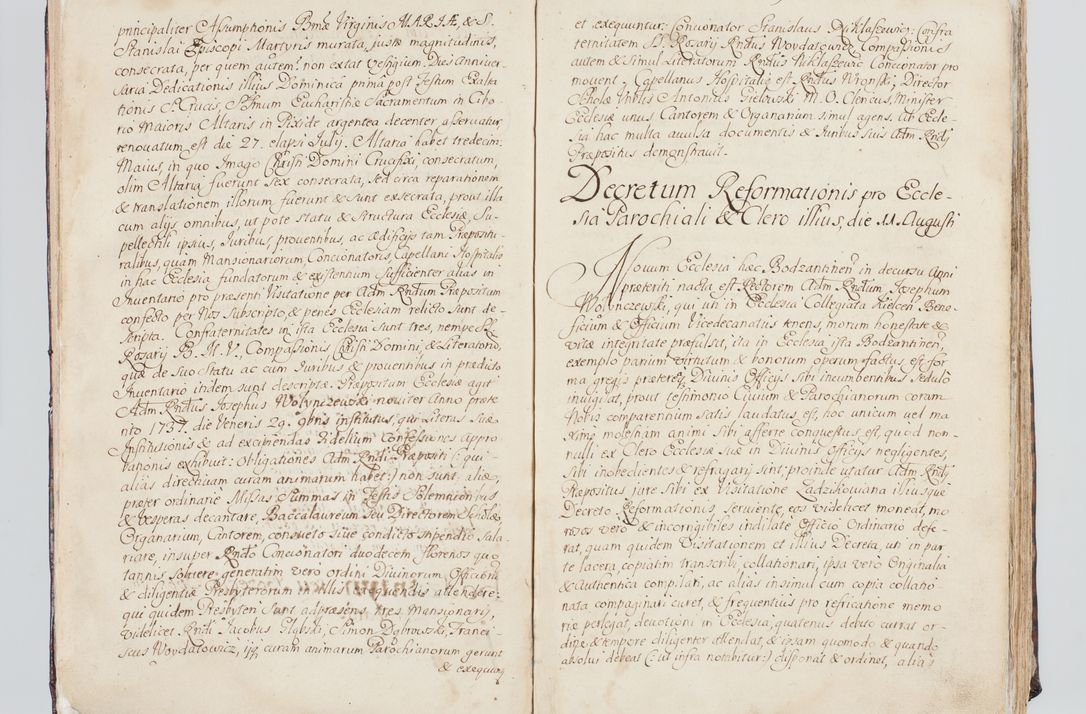 principaliter Assumptionis Bmæ Virginis MARIÆ, & S.
Stanislai Episcopi Martyris murata, justæ magnitudinis,
consecrata, per quem autem? non extat vestigium. Dies Anniver-
saria Dedicationis illius Dominica prima post Festum Exalta-
tionis S. Crucis, SSmum Eucharistiæ Sacramentum in Cibo-
rio Maioris Altaris in Pixide argentea decenter asservatur
renovatum est die 27. elapsi Julij. Altaria habet tredecim:
Maius, in quo Imago Chrsti Domini Crucifixi, consecratum,
olim Altaria fuerunt sex consecrata, sed circa reparationem
& translationem illorum fuerunt & sunt execrata, prout illa
cum alijs omnibus, ut pote statu & structura Ecclesiæ, Su-
pellectili ipsius, Juribus, proventibus, ac ædificijs tam Præpositu-
ralibus, quam Mansionariorum, Concionatoris, Capellani Hospitalis
in hac Ecclesia fundatorum & existentium sufficienter alias in
Inventario pro præsenti Visitatione per Adm. Rndum Præpositum
confecto per Nos subscripto & penes Ecclesiam relicto sunt de-
scripta. Confraternitates in ista Ecclesia sunt tres, nempe SS.
Rosarij B. M. V., Compassionis Chrsti Domini, & Literatorũ,
quæ de suo statu ac cum Juribus & proventibus in prædicto
Inventario indem sunt descriptæ. Præpositum Ecclesiæ agit
Adm. Rndus Josephus Wolynczewski noviter Anno præte-
rito 1737 die Veneris 29. 9bris institutus, qui Literas suæ
Institutionis & ad excipiendas Fidelium Confessiones appro-
bationis exhibuit: Obligationes Adm. Rndi Præpositi (: qui
alias directivam curam animarum habet :) non sunt aliæ,
præter ordinarie Missas Summas in Festis Solemnioribus
& Vesperas decantare, Baccalaureum seu Directorem Scholæ,
Organarium, Cantorem, consueto sive condicto stipendio sala-
riare, insuper Rndo Concionatori duodecem florenos quo-
tannis solvere, generatim vero ordini Divinorum Officiorũ
& diligentiæ Presbyterorum in illis exequendis attendere:
qui quidem Presbyteri sunt ad præsens tres Mansionarij,
videlicet Rndi Jacobus Glybski, Simon Dąbrowski, Franci-
scus Woydatowicz, ijq curam animarum Parochianorum gerunt
& exequunt
et exequuntur. Concionator Stanislaus Niklaszewic: Confra-
ternitatem SS. Rosarij Rndus Woydatowic, Compassionis
autem & simul Literatorum Rndus Niklaszewic Concionator pro-
movent. Capellanus Hospitalis est Rndus Wronski, Director
Scholæ Nobilis Antonius Gielowski M. O. Clericus, Minister
Ecclesiæ unus Cantorem & Organarium simul agens. Ab Eccle-
sia hac multa avulsa documentis & Juribus suis Adm. Rndq
Præpositus demonstravit.
Decretum Reformationis pro Eccle-
sia Parochiali & Clero illius, die 11. Augusti
Novum Ecclesia hæc Bodzantinen in decursu Anni
præteriti nacta est Rectorem Adm. Rndum Josephum
Wolynczewski, qui uti in Ecclesia Collegiata Kielcen Bene-
ficium & Officium Vicedecanatus tenens, morum honestate &
vitæ integritate præfulsit, ita in Ecclesia ista Bodzantinen
exemplo parium virtutum & bonorum operum factus est for-
ma gregis præterea Divinis Officijs sibi incumbentibus sedulo
invigilat, prout testimonio Civium & Parochianorum coram
Nobis comparentium satis laudatus est, hoc unicum vel ma-
ximo molestiam animi sibi afferre conquestus est, quod non-
nulli ex Clero Ecclesiæ suæ in Divinis officijs negligentes,
sibi inobedientes & refragarij sint; proinde utatur Adm. Rndq
Præpositus jure sibi ex Visitatione Zadzikowiana illiusque
Decreto Reformationis, serviente, eos videlicet moneat, mo-
rosos vero & incorrigibiles indilate Officio Ordinario defe-
rat, quam quidem Visitationem et illius Decreta, uti in par-
te lacera, copiatim transcribi, collationari, ipsa vero Originalia
& authentica compilari, ac alias insimul cum copia collatio-
nata compaginari curet, & frequentius pro refricatione memo-
riæ perlegat, devotioni in Ecclesia, quatenus debito currat or-
dine & tempore diligenter attendat, & ipsam quomodo & quando
absolvi debeat (: ut infra notabitur :) disponat & ordinet, alias